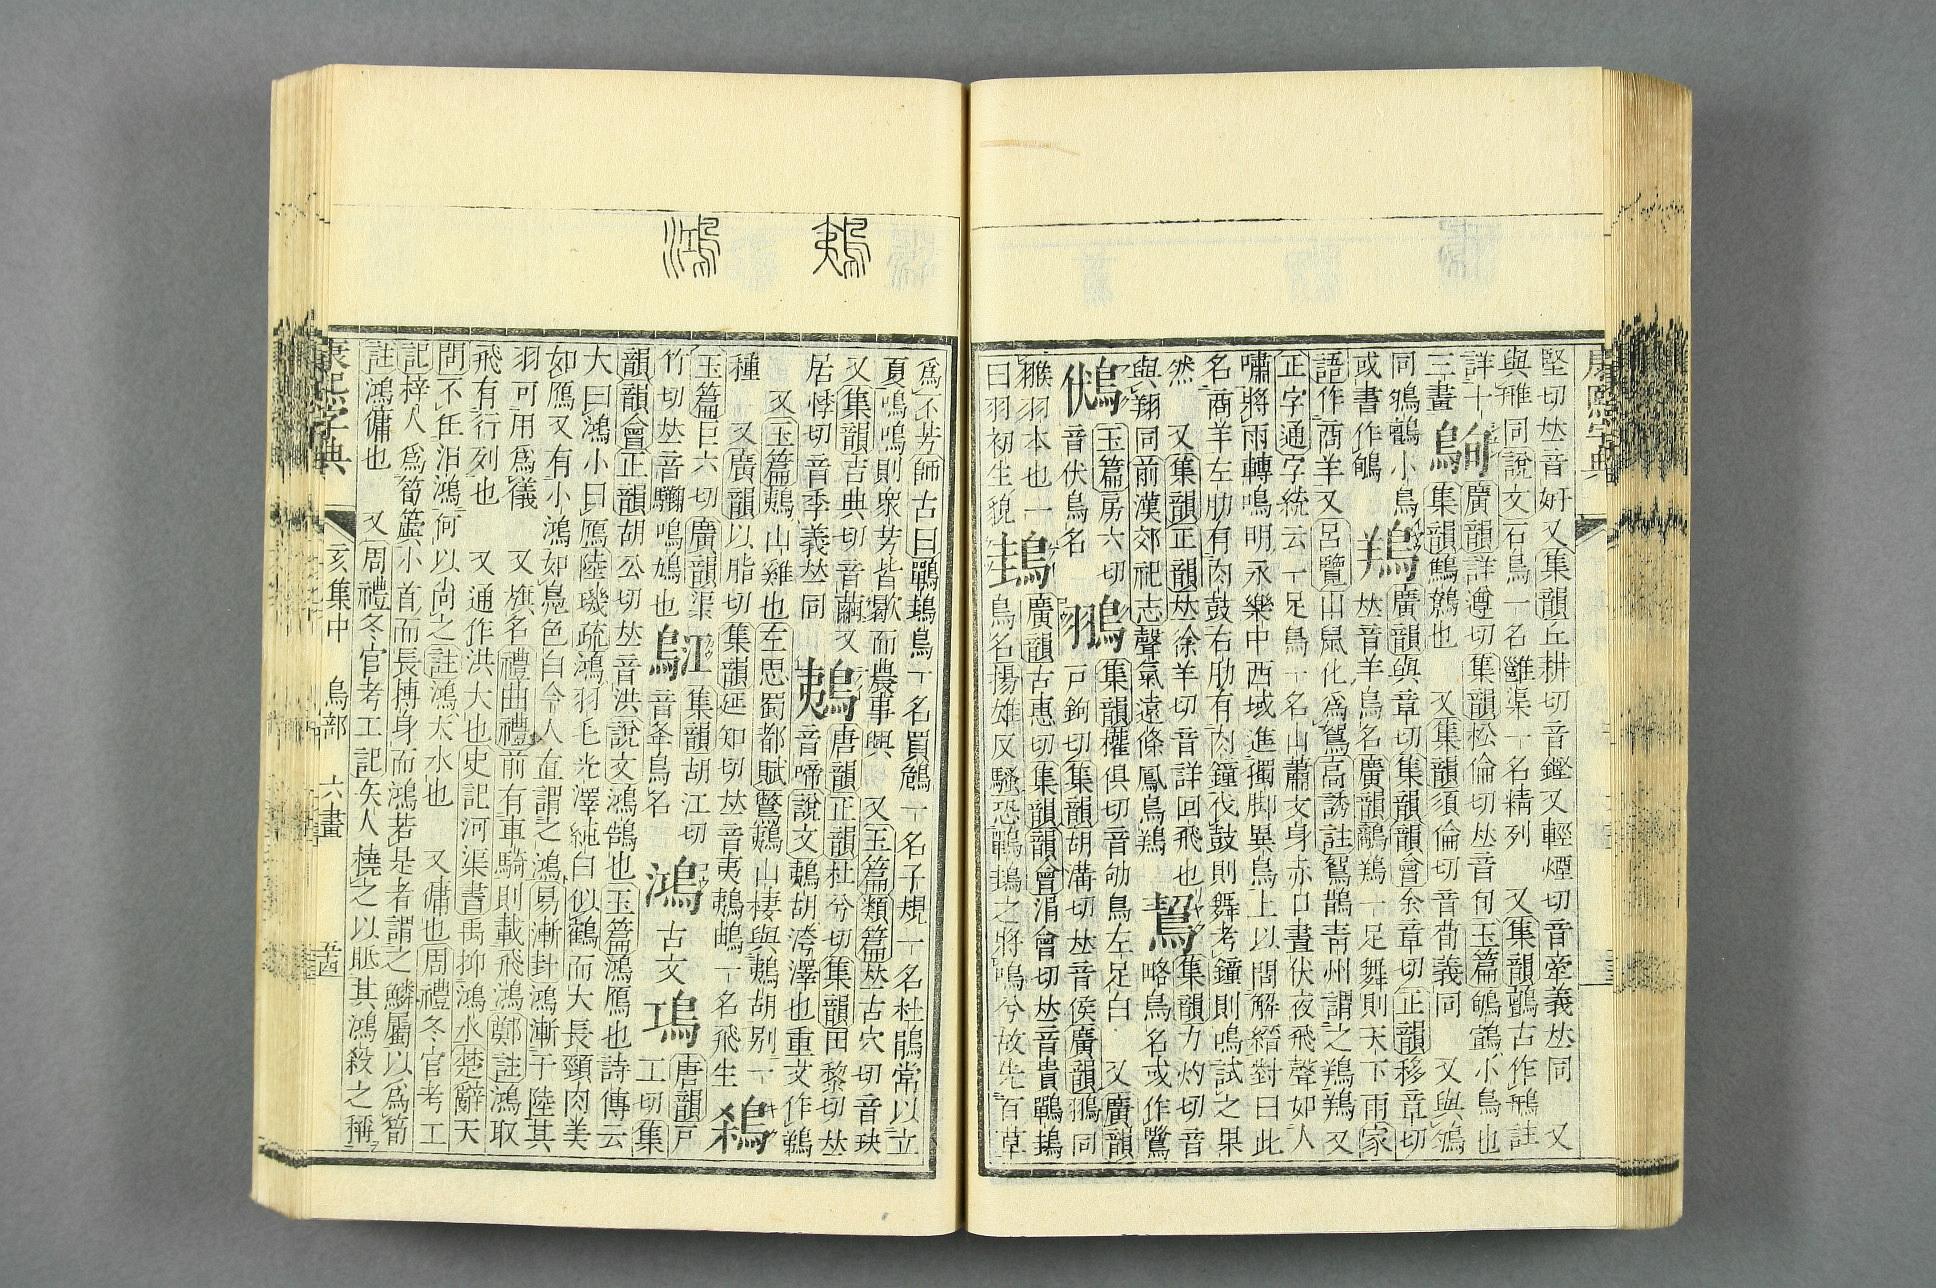 康熙字典
堅切𠀤音姸又集韻丘耕切音鏗又輕煙切音牽義𠀤同 又
與雃同說文石鳥一名雝渠一名精列 又集韻鶄古作鳽註
詳十 廣韻詳遵切集韻松倫切𠀤音旬玉篇小鳥也
三畫 集韻也 又集韻須倫切音荀義同 又與
同小鳥 廣韻與章切集韻韻會余章切正韻移章切
或書作鴝 鴹 𠀤音羊鳥名廣韻鸘鴹一足舞則天下雨家
語作商羊又呂覽山鼠化爲鴽高誘註鴽鶉青州謂之鴹 又
正字通字統云一足鳥一名山蕭文身赤口晝伏夜飛聲如人
嘯將雨轉鳴明永樂中西域進獨脚異鳥上以問解縉對曰此
名商羊左肋有肉鼓右肋有肉鐘伐鼓則舞考鐘則鳴試之果
然 又集韻正韻𠀤徐羊切音詳回飛也 集韻力灼切音
與翔同前漢郊祀志聲氣遠條鳳鳥鴹 略鳥名或作
玉篇房六切 集韻權俱切音劬鳥左足白 又廣韻
音伏鳥名 戸鉤切集韻胡溝切𠀤音侯廣韻同
翭羽本也一 廣韻古惠切集韻韻會涓會切𠀤音貴鷤鴂
曰羽初生貌 鳥名揚雄反騷恐鷤鴂之將鳴兮故先百草
爲不芳師古曰鷤鴂鳥一名買一名子規一名杜鵑常以立
夏鳴鳴則衆芳皆歇而農事興 又玉篇類篇𠀤古穴切音玦
又集韻吉典切音繭又 唐韻正韻杜兮切集韻田黎切𠀤
居悸切音季義𠀤同 鴺 音啼說文鴺胡洿澤也重文作鵜
又玉篇鴺山雞也左思蜀都賦鷩鴺山棲與鴺胡别
種 又廣韻以脂切集韻延知切𠀤音夷鴺鴡一名飛生
玉篇巨六切廣韻渠 集韻胡江切 唐韻戸
竹切𠀤音鳴鳩也 音夅鳥名 鴻 古文 工切集
韻韻會正韻胡公切𠀤音洪說文鴻鵠也玉篇鴻鴈也詩傳云
大曰鴻小曰鴈陸璣疏鴻羽毛光澤純白似鶴而大長頸肉美
如鴈又有小鴻如鳧色白今人直謂之鴻易漸卦鴻漸于陸其
羽可用爲儀 又旗名禮曲禮前有車騎則載飛鴻鄭註鴻取
飛有行列也 又通作洪大也史記河渠書禹抑鴻水楚辭天
問不任汨鴻何以尚之註鴻大水也 又傭也周禮冬官考工
記梓人爲筍簴小首而長摶身而鴻若是者謂之鱗屬以爲筍
註鴻傭也 又周禮冬官考工記矢人橈之以眡其鴻殺之稱
康熙字典 亥集中 鳥部 六畫
鴺
鴻